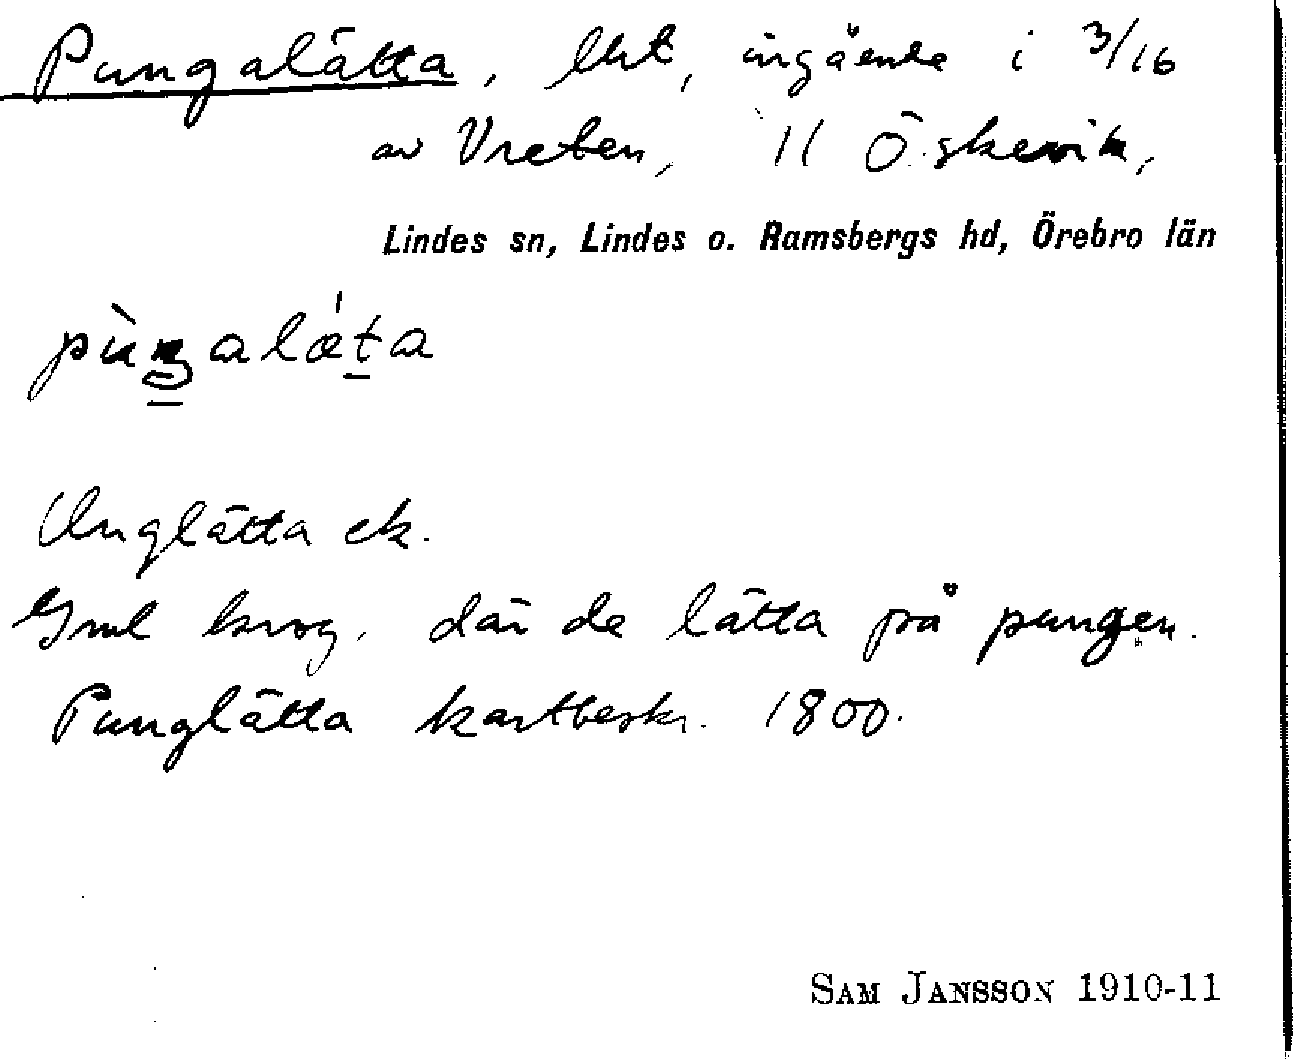 Pungalätta, lht, ingående i 3/16
av Vreten, 11 Ö. skevik,
Lindes sn, Lindes o. Ramsbergs hd, Örebro län
pùŋalæ̀ta
Unglätta ek.
Gml krog, där de lätta på pungen.
Punglätta kartbeskr. 1800.
SAM JANSSON 1910-11